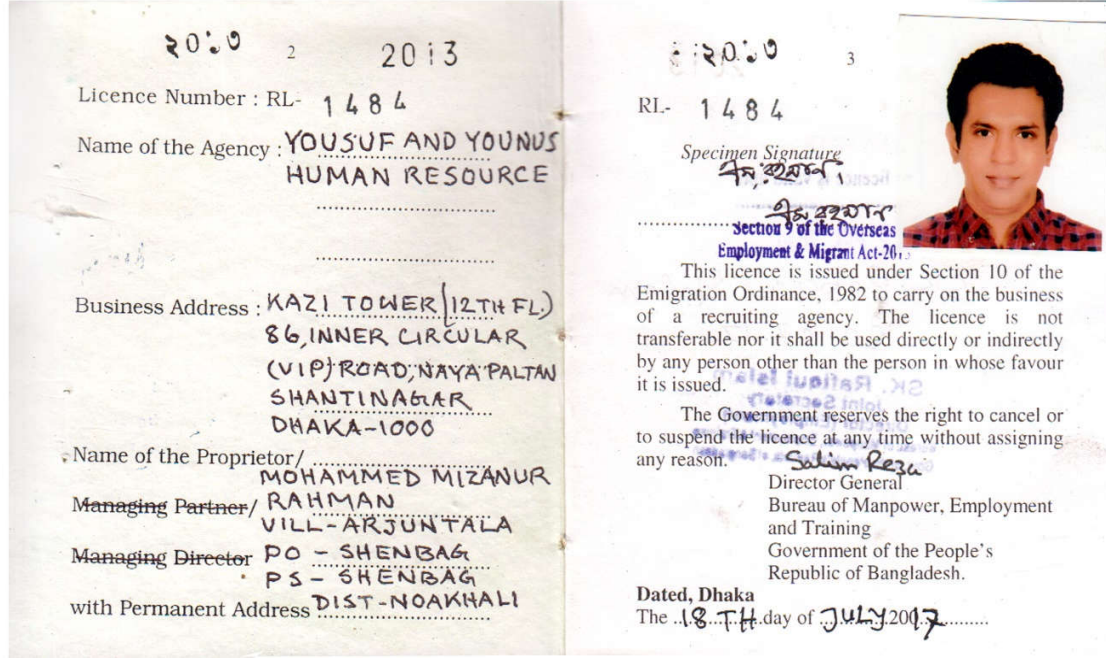 ২০১৩ 2 2013
Licence Number : RL- 1484
Name of the Agency : YOUSUF AND YOUNUS
HUMAN RESOURCE
Business Address : KAZI TOWER (12TH FL.)
86, INNER CIRCULAR
(VIP) ROAD, NAYA PALTAN
SHANTINAGAR
DHAKA-1000
Name of the Proprietor/
MOHAMMED MIZANUR
Managing Partner/ RAHMAN
VILL-ARJUNTALA
Managing Director PO - SHENBAG
PS - SHENBAG
with Permanent Address DIST-NOAKHALI
২০১৩ 3
RL- 1484
Specimen Signature
এম. রহমান
এম রহমান
Section 9 of the Overseas
Employment & Migrant Act-201
This licence is issued under Section 10 of the
Emigration Ordinance, 1982 to carry on the business
of a recruiting agency. The licence is not
transferable nor it shall be used directly or indirectly
by any person other than the person in whose favour
it is issued.
The Government reserves the right to cancel or
to suspend the licence at any time without assigning
any reason.
Salim Reza
Director General
Bureau of Manpower, Employment
and Training
Government of the People's
Republic of Bangladesh.
Dated, Dhaka
The 18TH day of JULY 2017